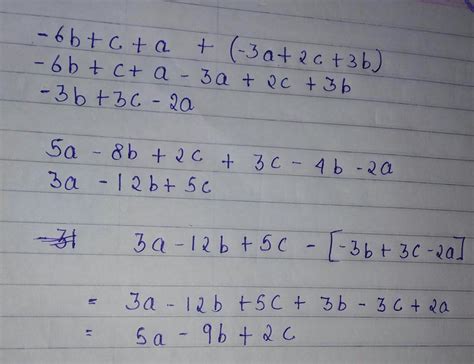 -6b + c + a + (-3a + 2c + 3b)
-6b + c + a - 3a + 2c + 3b
-3b + 3c - 2a
5a - 8b + 2c + 3c - 4b - 2a
3a - 12b + 5c
3a - 12b + 5c - [-3b + 3c - 2a]
= 3a - 12b + 5c + 3b - 3c + 2a
= 5a - 9b + 2c